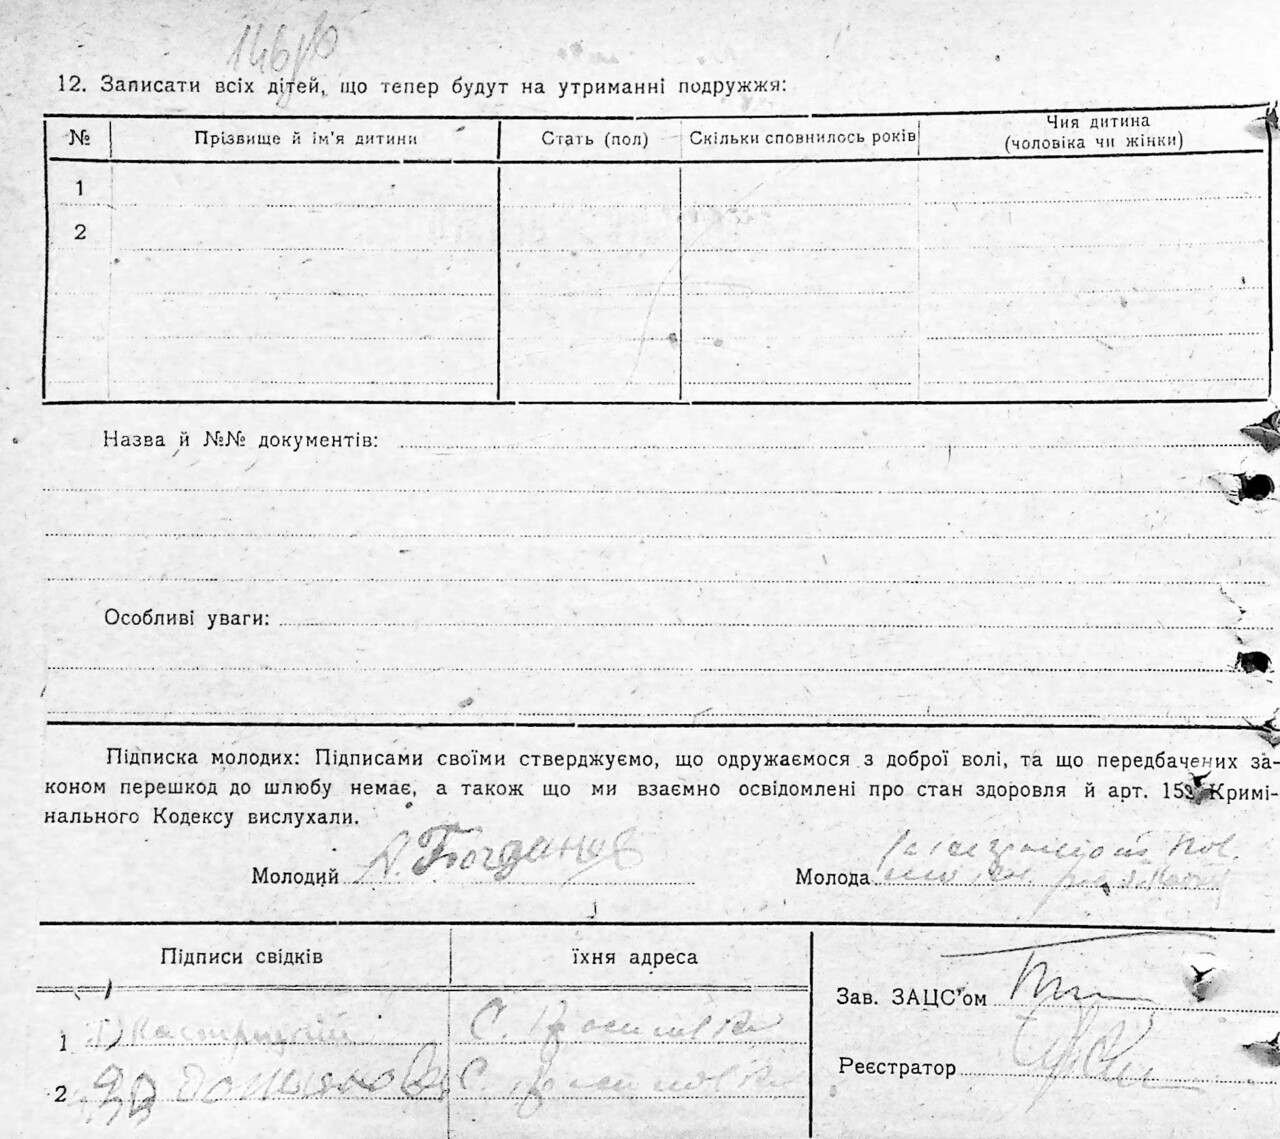 12. Записати всіх дітей, що тепер будут на утриманні подружжя:
№ Прізвище й ім'я дитини Стать (пол) Скільки сповнилось років Чия дитина (чоловіка чи жінки)
1
2
Назва й №№ документів:
Особливі уваги:
Підписка молодих: Підписами своїми стверджуємо, що одружаємося з доброї волі, та що передбачених за-
коном перешкод до шлюбу немає, а також що ми взаємно освідомлені про стан здоровля й арт. 15 Кримі-
нального Кодексу вислухали.
Молодий А. Богданов Молода
Підписи свідків їхня адреса
Зав. ЗАЦС'ом
1 С.
Реєстратор
2 С.